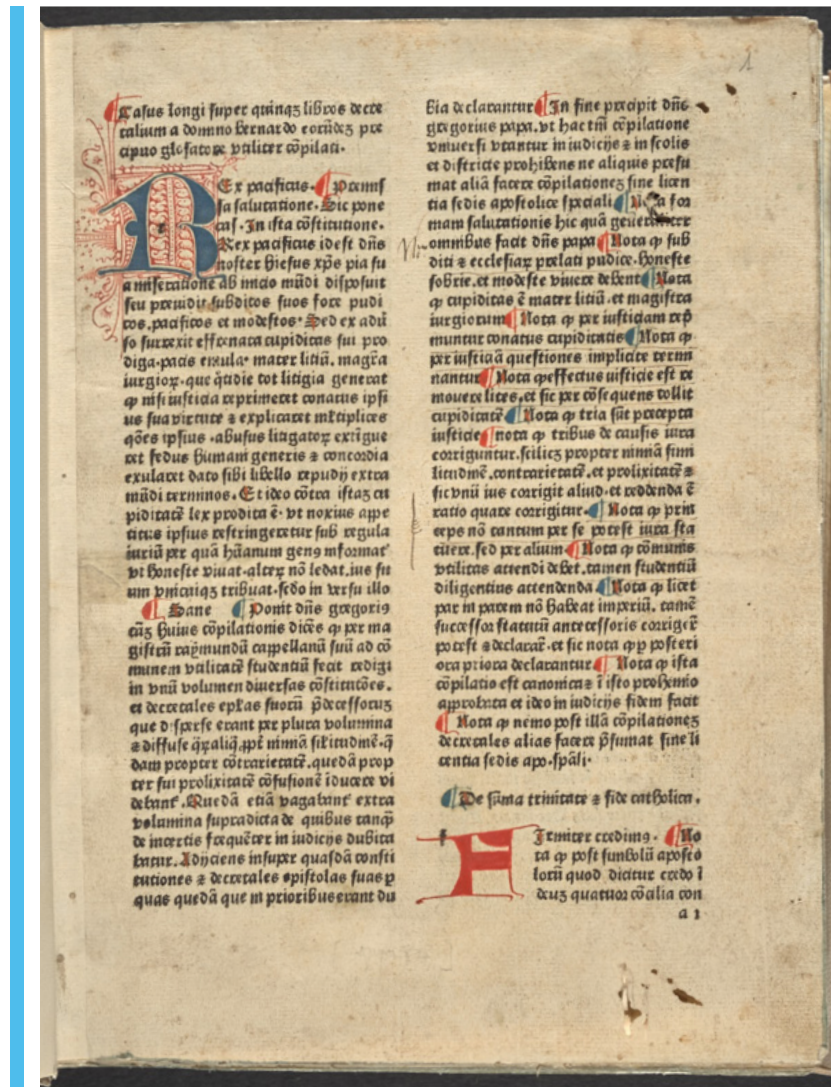 1
Casus longi super quinqꝫ libros decre
talium a domno bernardo eorūdeꝫ pre
cipuo glosatore vtiliter cōpilati·
REx pacificus· ¶ Premis
sa salutatione. Sic pone
cas̄· In ista cōstitutione·
Rex pacificus id est dn̄s
noster hiesus xp̄s pia su
a miseratione ab inicio mūdi disposuit
seu preuidit subditos suos fore pudi
cos.pacificos et modestos· Sed ex adū
so surrexit effrenata cupiditas sui pro
diga·pacis emula· mater litiū. magr̄a
iurgioꝝ·que q̄tidie tot litigia generat
ꝙ nisi iusticia reprimeret conatus ipsi
us sua virtute ⁊ explicaret ml̄tiplices
qōes ipsius ·abusus litigatoꝝ extīgue
ret fedus humani generis ⁊ concordia
exularet dato sibi libello repudij extra
mūdi terminos. Et ideo cōtra istaꝫ cu
piditatē lex prodita ē· vt noxius appe
titus ipsius restringeretur sub regula
iuris per quā hūanum genꝰ informat᷑
vt honeste viuat·alteꝝ nō ledat.ius su
um vnicuiqꝫ tribuat·scdo in versu illo
¶ Sane ¶ Ponit dn̄s gregoriꝰ
cāꝫ huius cōpilationis dicēs ꝙ per ma
gistrū raymundū cappellanū suū ad cō
munem vtilitatē studentiū fecit redigi
in vnū volumen diuersas cōstitutōes.
et decretales ep̄las suorū p̄decessoruꝫ
que disperse erant per plura volumina
⁊ diffuse q̄ꝝ aliq̄.ꝓpt̄ nimiā sil̄itudinē·q̄
dam propter cōtrarietatē.quedā prop
ter sui prolixitatē cōfusionē īducere vi
debant᷑. Quedā etiā vagabant᷑ extra
volumina supradicta de quibus tanꝙ̄
de incertis frequēter in iudicijs dubita
batur. Adijciens insuper quasdā consti
tutiones ⁊ decretales epistolas suas ꝑ
quas quedā que in prioribus erant du
bia declarantur ¶ In fine precipit dn̄s
gregorius papa. vt hac tm̄ cōpilatione
vniuersi vtantur in iudicijs ⁊ in scolis
et districte prohibens ne aliquis presu
mat aliā facere cōpilationeꝫ sine licen
tia sedis apostolice speciali ¶ Nota for
mam salutationis hic quā generaliter
omnibus facit dn̄s papa ¶ Nota ꝙ sub
diti ⁊ ecclesiaꝝ prelati pudice·honeste
sobrie.et modeste viuere debent ¶ Nota
ꝙ cupiditas ē mater litiū.et magistra
iurgiorum ¶ Nota ꝙ per iusticiam rep̄
muntur conatus cupiditatis ¶ Nota ꝙ
per iusticiā questiones implicite termi
nantur ¶ Nota ꝙ effectus iusticie est re
mouere lites.et sic per cōsequens tollit
cupiditatē ¶ Nota ꝙ tria sūt precepta
iusticie ¶ nota ꝙ tribus de causis iura
corriguntur.scilicꝫ propter nimiā simi
litudinē.contrarietatē.et prolixitatē ⁊
sic vnū ius corrigit aliud·et reddenda ē
ratio quare corrigitur· ¶ Nota ꝙ prin
ceps nō tantum per se potest iura sta
tuere.sed per alium ¶ Nota ꝙ cōmunis
vtilitas attendi debet.tamen studentiū
diligentius attendenda ¶ Nota ꝙ licet
par in parem nō habeat imperiū. tamē
successor statutū antecessoris corriger̄
potest ⁊ declarar̄. et sic nota ꝙ ꝑ posteri
ora priora declarantur ¶ Nota ꝙ ista
cōpilatio est canonica ⁊ ī isto prohemio
approbata et ideo in iudicijs fidem facit
¶ Nota ꝙ nemo post illā cōpilationeꝫ
decretales alias facere p̄sumat sine li
centia sedis apo·sp̄ali·
¶ De sūma trinitate ⁊ fide catholica.
FIrmiter credimꝰ· ¶ No
ta ꝙ post simbolū aposto
lorū quod dicitur credo ī
deuꝫ quatuor cōcilia con
a 1